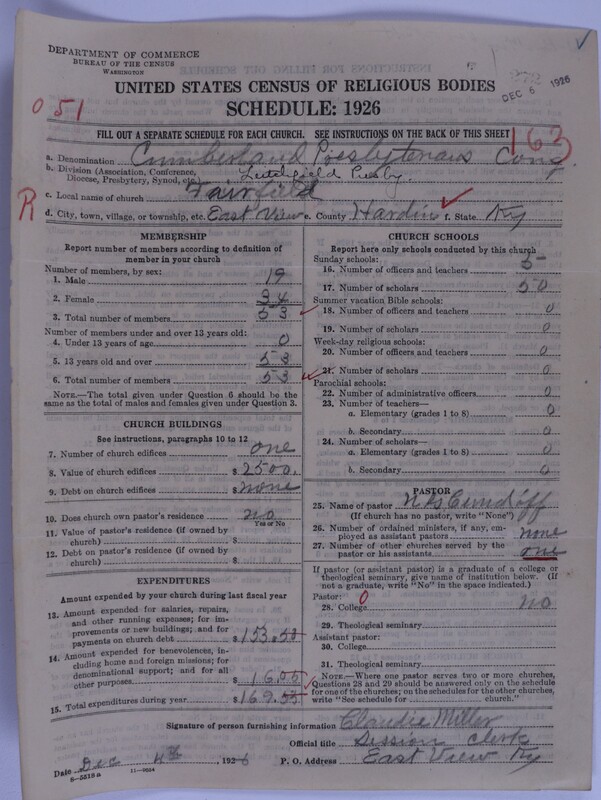 DEPARTMENT OF COMMERCE
BUREAU OF THE CENSUS
WASHINGTON
DEC 6 1926
UNITED STATES CENSUS OF RELIGIOUS BODIES
SCHEDULE: 1926
051
FILL OUT A SEPARATE SCHEDULE FOR EACH CHURCH. SEE INSTRUCTIONS ON THE BACK OF THIS SHEET
163
a. Denomination Cumberland Presbyterians Cong
b. Division (Association, Conference, Diocese, Presbytery, Synod, etc.) Leitchfield Presby.
c. Local name of church Fairfield
R
d. City, town, village, or township, etc. East View e. County Hardin f. State Ky
MEMBERSHIP
Report number of members according to definition of
member in your church
Number of members, by sex:
1. Male 19
2. Female 34
3. Total number of members 53
Number of members under and over 13 years old:
4. Under 13 years of age 0
5. 13 years old and over 53
6. Total number of members 53
NOTE.—The total given under Question 6 should be
the same as the total of males and females given under Question 3.
CHURCH BUILDINGS
See instructions, paragraphs 10 to 12
7. Number of church edifices one
8. Value of church edifices $2500.
9. Debt on church edifices $none
10. Does church own pastor's residence no
Yes or No
11. Value of pastor's residence (if owned by
church) $
12. Debt on pastor's residence (if owned by
church) $
EXPENDITURES
Amount expended by your church during last fiscal year
13. Amount expended for salaries, repairs,
and other running expenses; for im-
provements or new buildings; and for
payments on church debt $153.53
14. Amount expended for benevolences, in-
cluding home and foreign missions; for
denominational support; and for all
other purposes $16.00
15. Total expenditures during year $169.53
CHURCH SCHOOLS
Report here only schools conducted by this church
Sunday schools:
16. Number of officers and teachers 5
17. Number of scholars 50
Summer vacation Bible schools:
18. Number of officers and teachers 0
19. Number of scholars 0
Week-day religious schools:
20. Number of officers and teachers 0
21. Number of scholars 0
Parochial schools:
22. Number of administrative officers 0
23. Number of teachers—
a. Elementary (grades 1 to 8) 0
b. Secondary 0
24. Number of scholars—
a. Elementary (grades 1 to 8) 0
b. Secondary 0
PASTOR
25. Name of pastor
(If church has no pastor, write "None")
26. Number of ordained ministers, if any, em-
ployed as assistant pastors none
27. Number of other churches served by the
pastor or his assistants one
If pastor (or assistant pastor) is a graduate of a college or
theological seminary, give name of institution below. (If
not a graduate, write "No" in the space indicated.)
Pastor: 0
28. College no
29. Theological seminary
Assistant pastor:
30. College
31. Theological seminary
NOTE.—Where one pastor serves two or more churches,
Questions 28 and 29 should be answered only on the schedule
for one of the churches; on the schedules for the other churches,
write "See schedule for church."
Signature of person furnishing information Claudie Miller
Official title Session Clerk
Date Dec 4th, 1926 P. O. Address East View Ky
6-5518a 11-9664